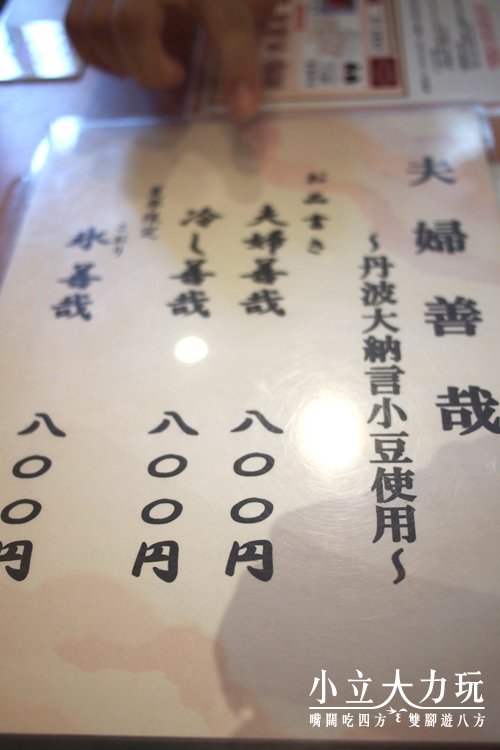 夫婦善哉
～丹波大納言小豆使用～
お品書き
夫婦善哉 八〇〇円
冷し善哉 八〇〇円
夏季限定
こおり
氷善哉 八〇〇円
小立大力玩
嘴闊吃四方 雙腳遊八方